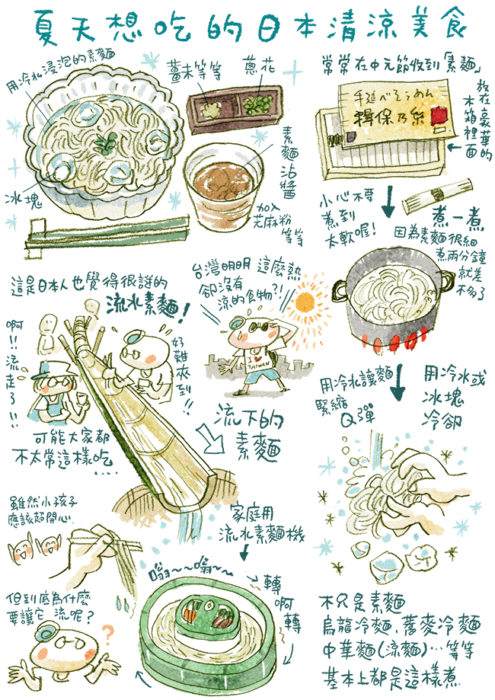 夏天想吃的日本清涼美食
用冷水浸泡的素麵
薑末等等
蔥花
冰塊
素麵沾醬
加入
芝麻粉
等等
常常在中元節收到「素麵」
手延べそうめん
揖保乃糸
放在豪華的
木箱裡面
小心不要
煮到
太軟喔!
煮一煮
因為素麵很細
煮兩分鐘
就差
不多了
用冷水讓麵
緊縮
Q彈
用冷水或
冰塊
冷卻
不只是素麵
烏龍冷麵、蕎麥冷麵
中華麵(涼麵)…等等
基本上都是這樣煮
這是日本人也覺得很謎的
流水素麵!
台灣明明這麼熱
卻沒有
涼的食物?!
I ♥
TAIWAN
啊!!
流走了!!
好難夾到!!
流下的
素麵
可能大家都
不太常這樣吃
……
雖然小孩子
應該超開心
但到底為什麼
要讓它流呢?
?
家庭用
流水素麵機
嗡~~嗡~~
轉啊轉